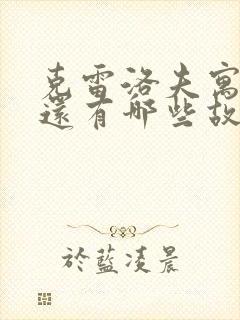 克雷洛夫寓
還有哪些故
於藍凌晨